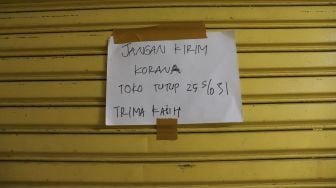 JANGAN KIRIM
KORAN
TOKO TUTUP 25 S/D 31
TRIMA KASIH